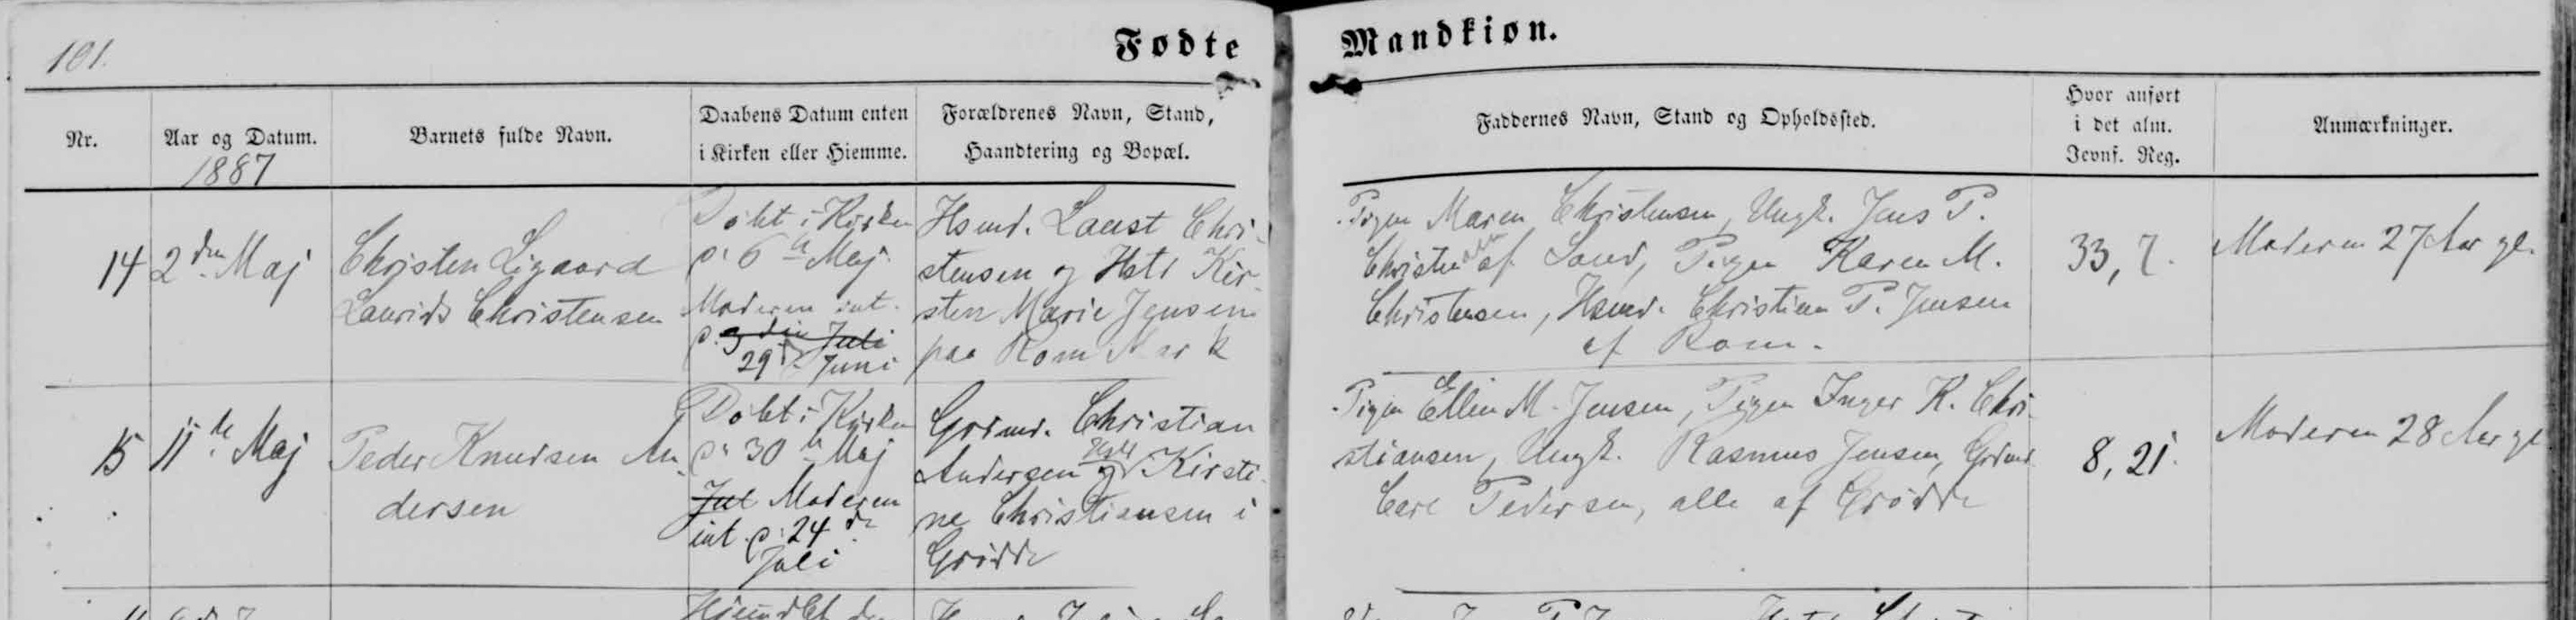 101.
Fødte Mandkiøn.
Nr.
Aar og Datum.
1887
Barnets fulde Navn.
Daabens Datum enten
i Kirken eller Hiemme.
Forældrenes Navn, Stand,
Haandtering og Bopæl.
Faddernes Navn, Stand og Opholdssted.
Hvor anført
i det alm.
Jevnf. Reg.
Anmærkninger.
14
2den Maj
Christen Ligaard
Laurids Christensen
Døbt i Kirken
6te Maj
Moderen int.
3die Juli
29de Juni
Hsmd. Laust Chri-
stensen og Hstr Kir-
sten Marie Jensen
paa Rom Mark
Pigen Maren Christensen, Ungk. Jens P.
Christensen af Sand, Pigen Karen M.
Christensen, Hsmd. Christian P. Jensen
af Rom.
33, 7.
Moderen 27 Aar gl.
15
11te Maj
Peder Knudsen An-
dersen
Døbt i Kirken
30te Maj
Jul Moderen
int. p. 24de
Juli
Grdmd. Christian
Andersen og Hstr Kirsti-
ne Christiansen i
Grødde
Pigen Ellen M. Jensen, Pigen Inger K. Chri-
stiansen, Ungk. Rasmus Jensen, Grdmd
Carl Pedersen, alle af Grødde
8, 21.
Moderen 28 Aar gl